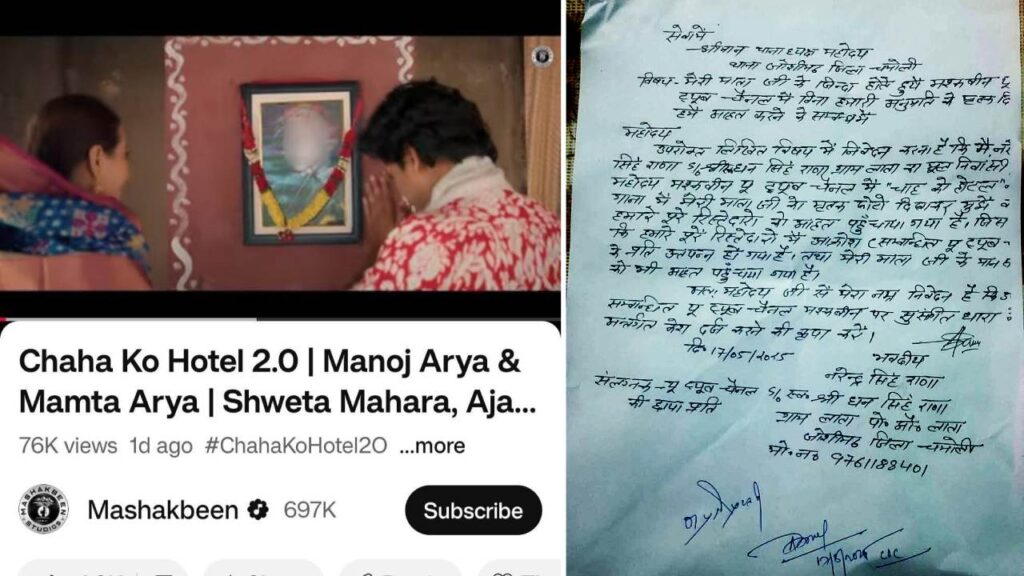 Chaha Ko Hotel 2.0 | Manoj Arya &
Mamta Arya | Shweta Mahara, Aja...
76K views 1d ago #ChahaKoHotel2O ...more
MASHAKBEEN STUDIOS
Mashakbeen 697K
Subscribe
सेवामें
श्रीमान थानाध्यक्ष महोदय
थाना जोशीमठ जिला - चमोली
विषय - मेरी माता जी के जिन्दा होते हुये मशकबीन यू
ट्यूब चैनल में बिना हमारी अनुमति के
हमें आहत करने के सम्बन्ध में
महोदय
उपरोक्त लिखित विषय में निवेदन करना है कि मैं
सिंह राणा S/o श्री धन सिंह राणा ग्राम लाता का मूल निवासी
महोदय मशकबीन यू ट्यूब चैनल में "चाह को होटल"
गाना में मेरी माता जी का मृतक फोटो दिखाकर मुझे व
हमारे पूरे रिश्तेदारों को आहत पहुँचाया गया है। जिस
कि हमारे पूरे रिश्तेदारों में आक्रोश सम्बन्धित यू ट्यूब
के प्रति उत्पन्न हो गया है। तथा मेरी माता जी के
को भी आहत पहुँचाया गया है।
अतः महोदय जी से मेरा नम्र निवेदन है कि
सम्बन्धित यू ट्यूब चैनल मशकबीन पर सुसंगत धारा
अन्तर्गत केश दर्ज करने की कृपा करें।
दि० 17/05/2025
भवदीय
नरेन्द्र सिंह राणा
संलग्नक - यू ट्यूब चैनल S/o स्व० श्री धन सिंह राणा
की छाया प्रति
ग्राम लाता पो० औ० लाता
जोशीमठ जिला - चमोली
मो० न० 9761188401